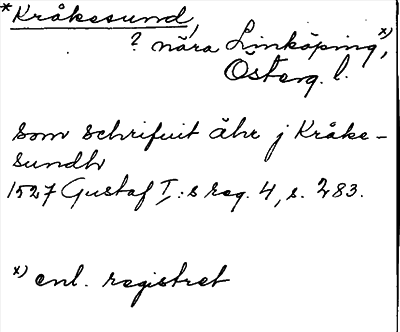 *Kråkesund,
? nära Linköping,ˣ⁾
Österg. l.
som schrifuit ähr j Kråke-
sundh
1527 Gustaf I:s reg. 4, s. 283.
x) enl. registret